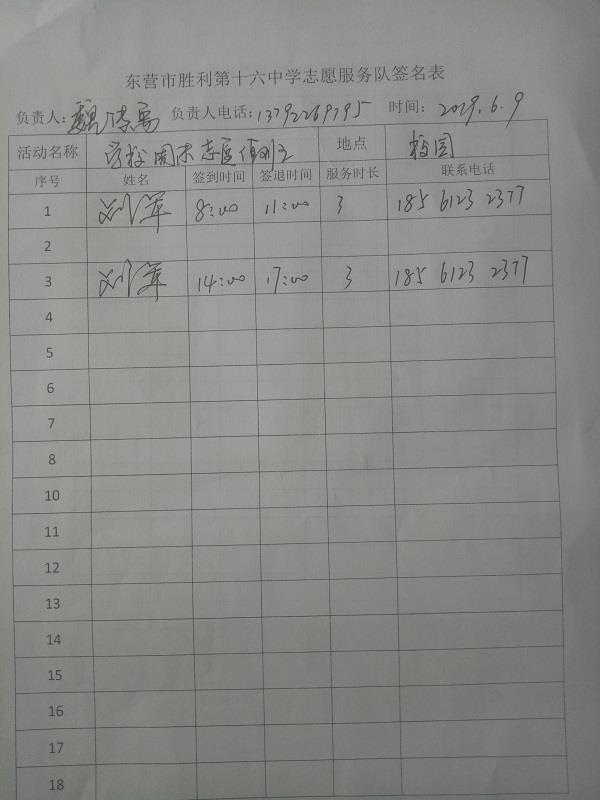 东营市胜利第十六中学志愿服务队签名表
负责人: 魏 负责人电话: 13792269795 时间: 2019.6.9
活动名称 学校周末志愿值班 地点 校园
序号 姓名 签到时间 签退时间 服务时长 联系电话
1 刘军 8:00 11:00 3 185 6123 2377
2
3 刘军 14:00 17:00 3 185 6123 2377
4
5
6
7
8
10
11
12
13
14
15
16
17
18